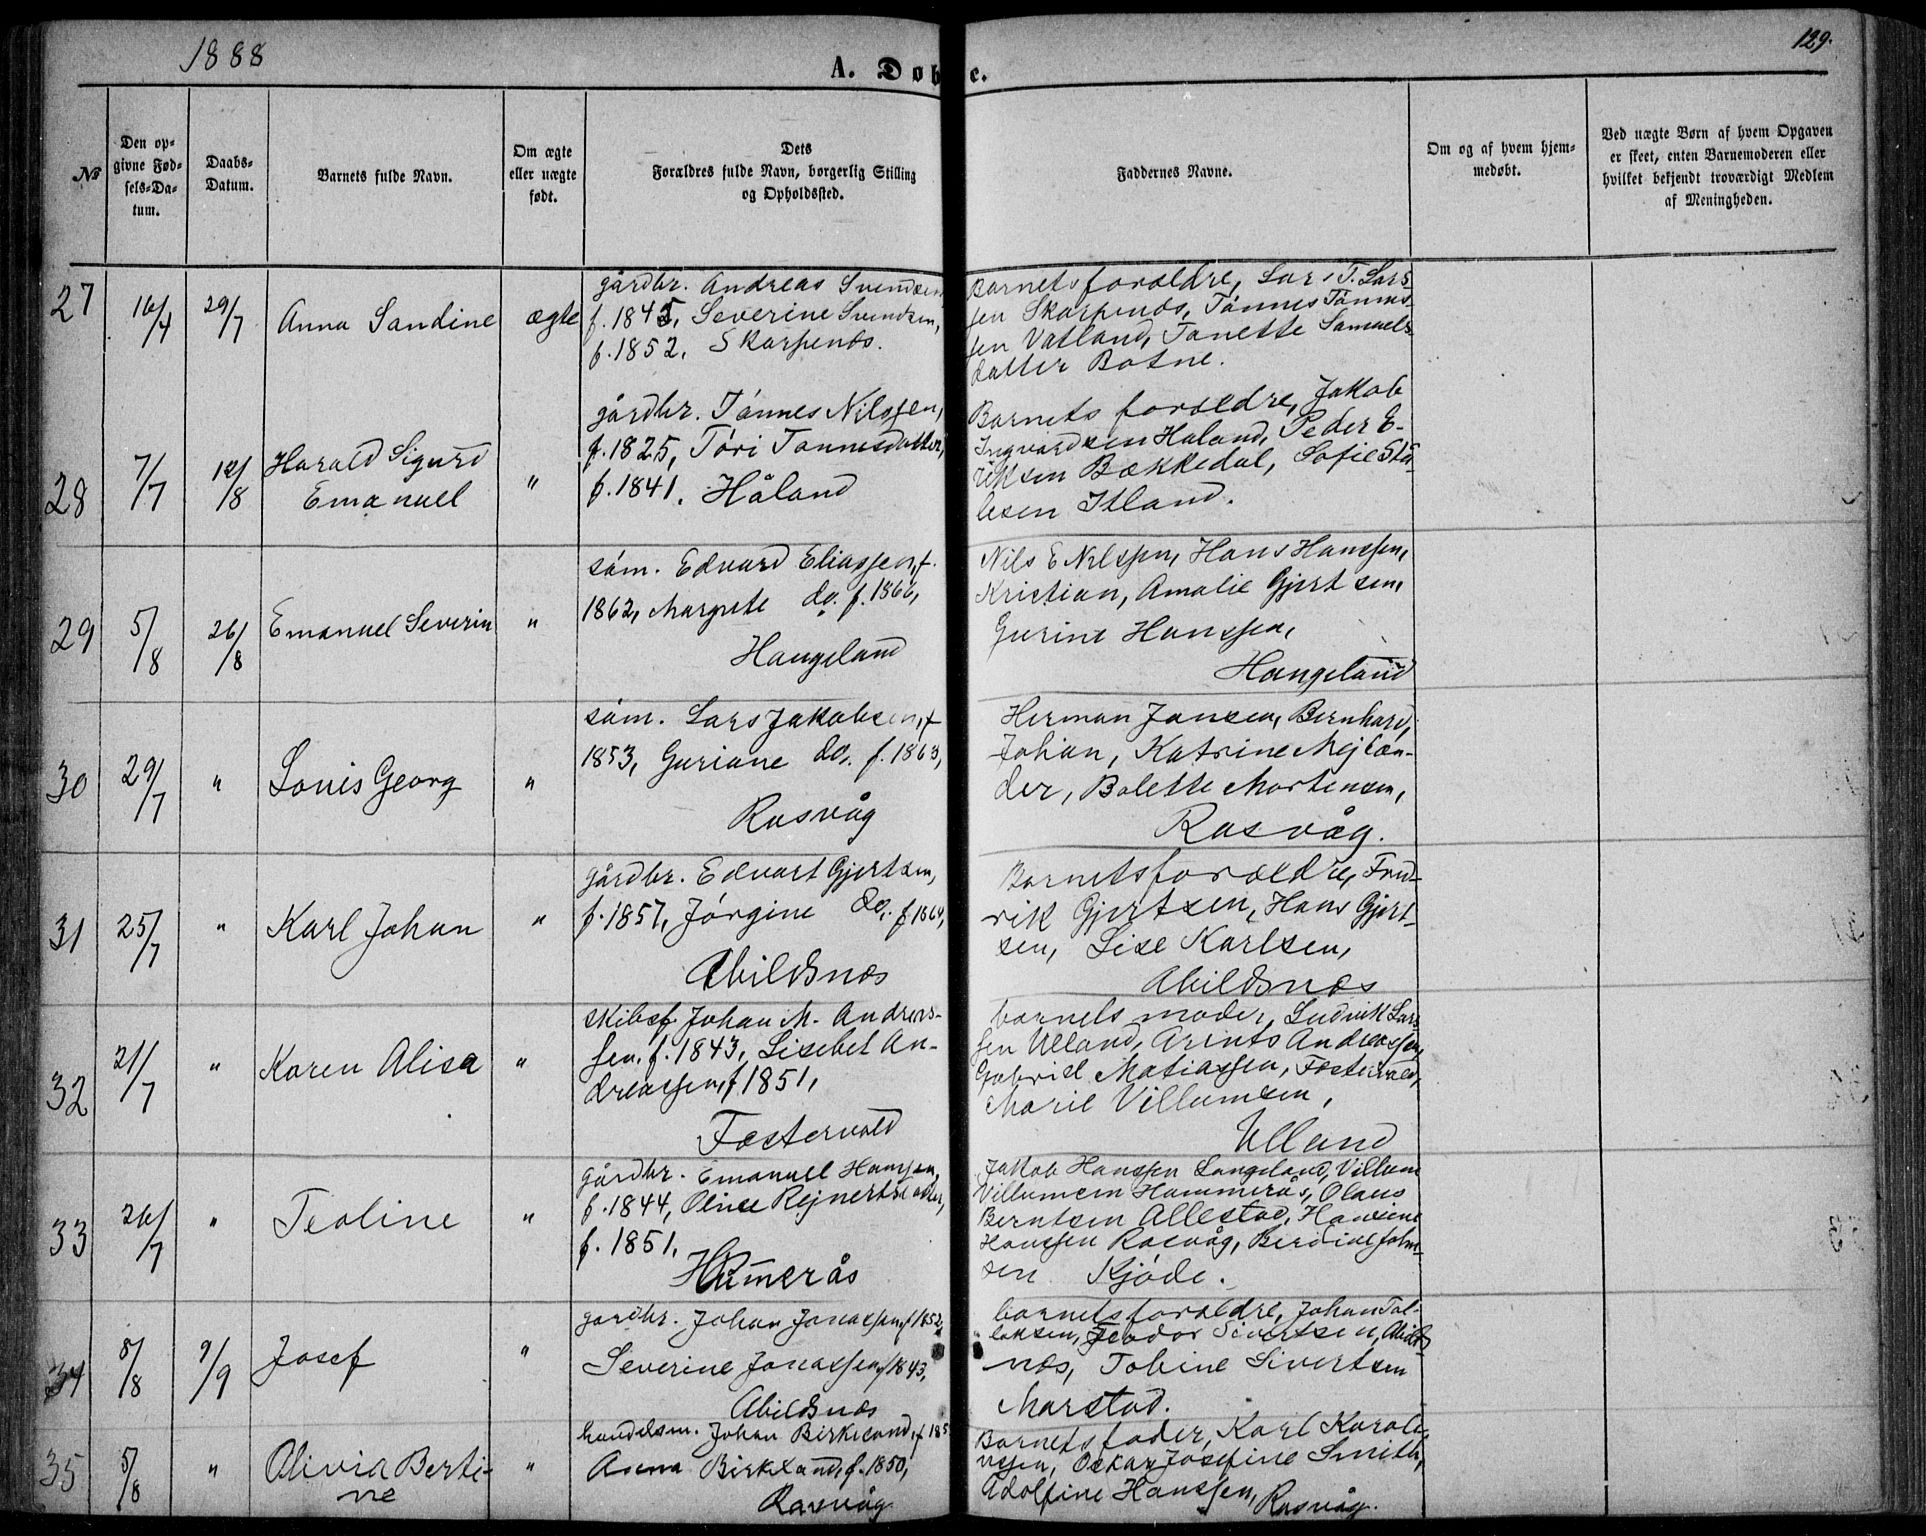 1888
A. Døbte.
129.
№
Den op-
givne Fød-
sels-Da-
tum.
Daabs-
Datum.
Barnets fulde Navn.
Om ægte
eller uægte
født.
Dets
Forældres fulde Navn, borgerlig Stilling
og Opholdssted.
Faddernes Navne.
Om og af hvem hjem-
medøbt.
Ved uægte Børn af hvem Opgaven
er skeet, enten Barnemoderen eller
hvilket bekjendt troværdigt Medlem
af Meningheden.
27
16/4
29/7
Anna Sandine
ægte
gårdbr. Andreas Svendsen
f. 1845, Severine Svendsen,
f. 1852. Skarpenæs.
Barnets forældre, Lars T. Lars-
sen Skarpenæs, Tønnes Tønnes-
sen Vatland, Tanette Samuels-
datter Botne.
28
7/7
12/8
Harald Sigurd
Emanuel
"
gårdbr. Tønnes Nilssen,
f. 1825, Tóri Tønnesdatter,
f. 1841. Håland
Barnets forældre, Jakob
Ingvardsen Håland, Peder E-
riksen Bækkedal, Sofie Stå-
lesen Itland.
29
5/8
26/8
Emanuel Severin
"
søm. Edvard Eliassen, f.
1862, Margrete do. f. 1866,
Haugeland
Nils E Nilssen, Hans Hanssen,
Kristian, Amalie Gjertsen,
Gurine Hanssen,
Haugeland
30
29/7
"
Louis Georg
"
søm. Lars Jakobsen, f
1853, Guriane do. f. 1863,
Rasvåg
Herman Jansen, Bernhard,
Johan, Katrine Mejlæn-
der, Bolette Mortensen,
Rasvåg.
31
25/7
"
Karl Johan
"
gårdbr. Edvart Gjertsen,
f. 1857, Jørgine do. f 1864,
Abildsnæs
Barnets forældre, Fred-
rik Gjertsen, Hans Gjert-
sen, Lise Karlsen,
Abildsnæs
32
21/7
"
Karen Alisa
"
skibsf. Johan M. Andreas-
sen. f. 1843, Lisebet An-
dreassen, f 1851,
Fæstervold
barnets moder, Ludvik Lars-
sen Ulland, Arints Andreassen,
Gabriel Matiassen, Fæstervold,
Marie Villumsen,
Ulland
33
26/7
"
Teoline
"
gårdbr. Emanuel Hanssen,
f. 1844, Olise Rejnertsdatter,
f. 1851.
Hamerås
Jakob Hanssen Langeland, Villum
Villumsen Hammerås, Olaus
Berntsen Allestad, Hansine
Hanssen Rasvåg, Berdine John-
sen Kjøde.
34
8/8
9/9
Josef
"
gardbr. Johan Jonassen, f 1852,
Severine Jonassen, f 1843,
Abildsnæs
barnets forældre, Johan Tol-
laksen, Teodor Sivertsen, Abilds-
næs, Tobine Sivertsen
Marstad.
35
5/8
"
Olivia Berti-
ne
"
handelsm. Johan Birkeland, f 185
Anna Birkeland, f. 1850,
Rasvåg
Barnets fader, Karl Karoli-
ussen, Oskar, Josefine Smith,
Adolfine Hanssen, Rasvåg.